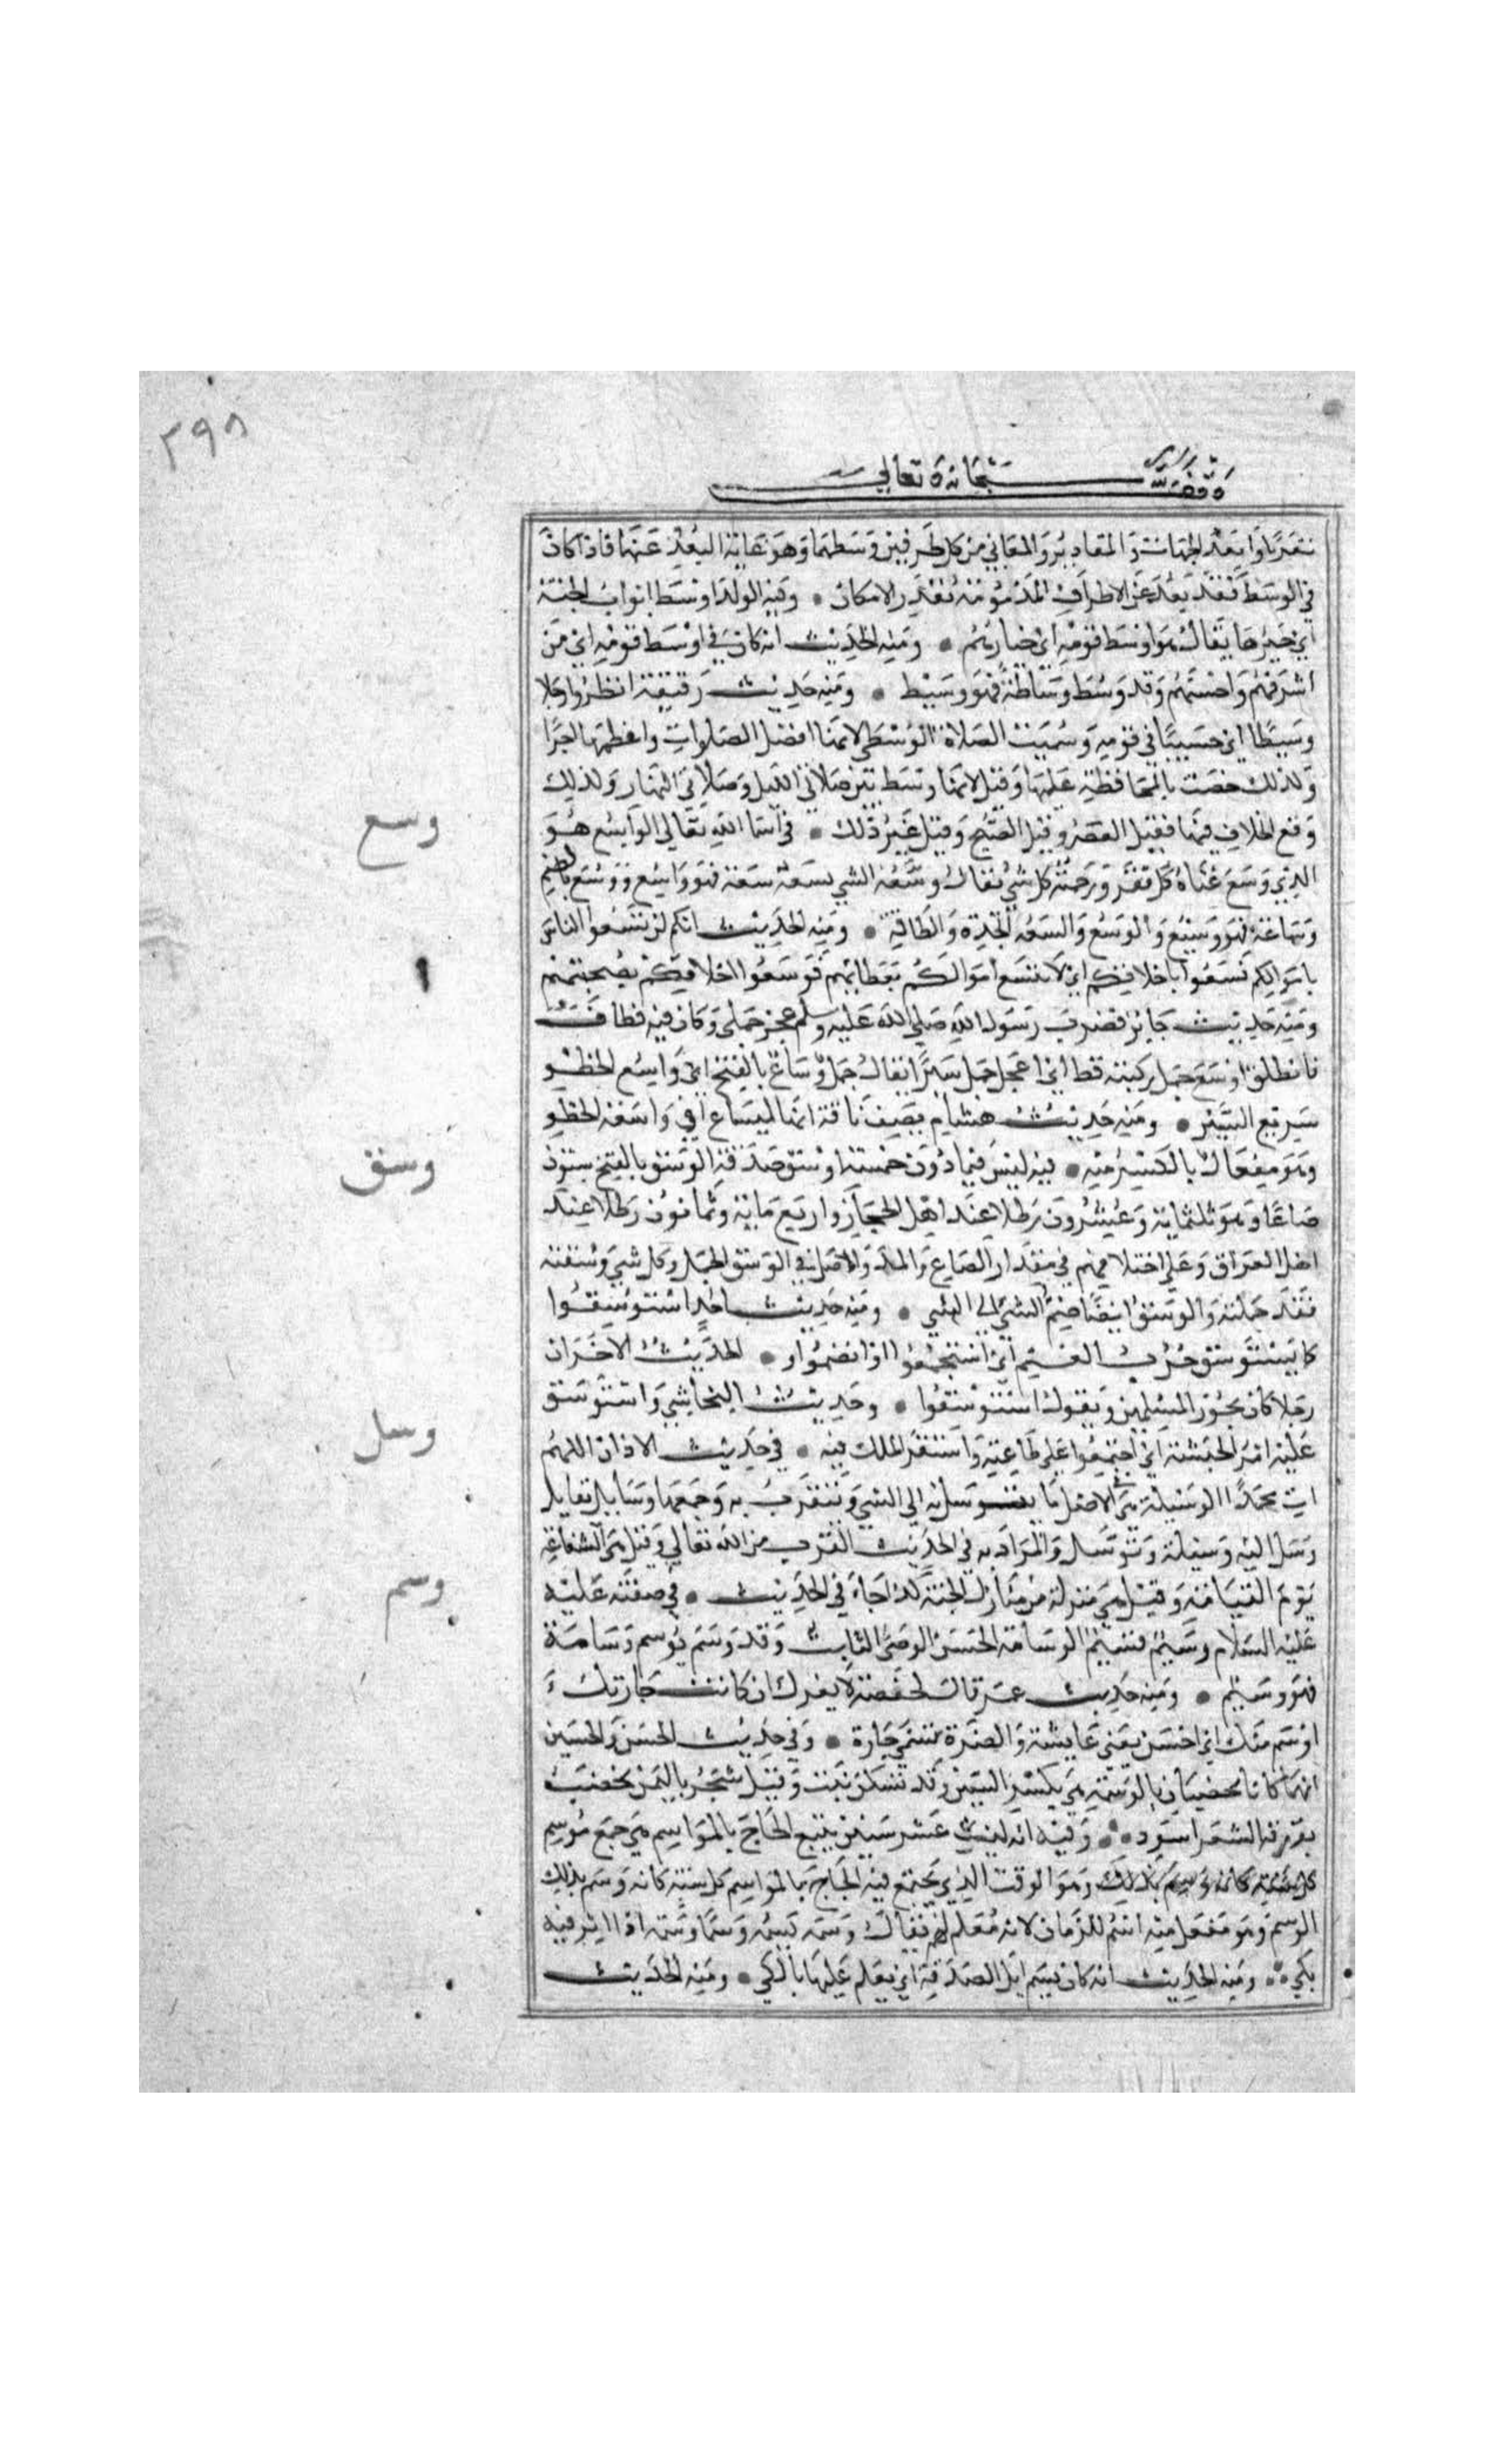 ٣٩٨
وقف لله سبحانه وتعالى
تعريا وابعد الجهات والمقادير والمعاني من كل طرفين وسطهما وهو غاية البعد عنها فاذا كان
في الوسط فقد بعد عن الاطراف المذمومة بقدر الامكان • وفيه الولد اوسط ابواب الجنة
اي خيرها يقال هو اوسط قومه اي خيارهم • ومنه الحديث انه كان في اوسط قومه اي من
اشرفهم واحسبهم وقد وسط وساطة فهو وسيط • ومنه حديث رقيقة انظروا رجلا
وسيطا اي حسيبا في قومه وسميت الصلاة الوسطى لانها افضل الصلوات واعظمها اجرا
ولذلك خصت بالمحافظة عليها وقيل لانها وسط بين صلاتي الليل وصلاتي النهار ولذلك
وقع الخلاف فيها فقيل العصر وقيل الصبح وقيل غير ذلك • في اسما الله تعالى الواسع هو
وسع
الذي وسع غناه كل فقر ورحمته كل شي يقال وسعه الشي يسعه سعة فهو واسع ووسع بالضم
وساعة فهو وسيع والوسع والسعة الجدة والطاقة • ومنه الحديث انكم لن تسعوا الناس
باموالكم فسعوا باخلاقكم اي لا تتسع اموالكم بعطائهم فوسعوا اخلاقكم بصحبتهم
ومنه حديث جابر فضرب رسول الله صلى الله عليه وسلم عجز جملي وكان فيه قطاف
فانطلق اوسع جمل ركبته قط اي اعجل جمل سيرا يقال جمل وساع بالفتح اي واسع الخطو
سريع السير • ومنه حديث هشام يصف ناقة انها لميساع اي واسعة الخطو
وهو مفعال بالكسر منه • فيه ليس فيما دون خمسة اوسق صدقة الوسق بالفتح ستون
وسق
صاعا وهو ثلثماية وعشرون رطلا عند اهل الحجاز واربع ماية وثمانون رطلا عند
اهل العراق وعلى اختلافهم في مقدار الصاع والمد والاصل في الوسق الحمل وكل شي وسقته
فقد حملته والوسق ايضا ضم الشي الى الشي • ومنه حديث احد استوسقوا
كما يستوسق جرب الغنم اي استجمعوا وانضموا • الحديث الاخر ان
رجلا كان يحوز المسلمين ويقول استوسقوا • وحديث النجاشي واستوسق
عليه امر الحبشة اي اجتمعوا على طاعته واستقر الملك فيه • في حديث الاذان اللهم
وسل
ات محمدا الوسيلة هي في الاصل ما يتوسل به الى الشي ويتقرب به وجمعها وسايل يقال
وسل اليه وسيلة وتوسل والمراد به في الحديث القرب من الله تعالى وقيل هي الشفاعة
يوم القيامة وقيل هي منزلة من منازل الجنة كذا جاء في الحديث • في صفته عليه
وسم
عليه السلام وسيم قسيم الوسامة الحسن الوضي الثابت وقد وسم يوسم وسامة
فهو وسيم • ومنه حديث عمر قال لحفصة لا يغرك ان كانت جارتك
اوسم منك اي احسن يعني عايشة والضرة تسمى جارة • وفي حديث الحسن والحسين
انهما كانا يخضبان بالوسمة هي بكسر السين وقد تسكن نبت وقيل شجر باليمن يخضب
بورقه الشعر اسود • وفيه انه لبث عشر سنين يتبع الحاج بالمواسم هي جمع موسم
وهو الوقت الذي يجتمع فيه الحاج بالمواسم كل سنة كانه وسم بذلك
الوسم وهو مفعل منه اسم للزمان لانه معلم لهم يقال وسمه يسمه وسما وسمة اذا اثر فيه
بكي • ومنه الحديث انه كان يسم ابل الصدقة اي يعلم عليها بالكي • ومنه الحديث